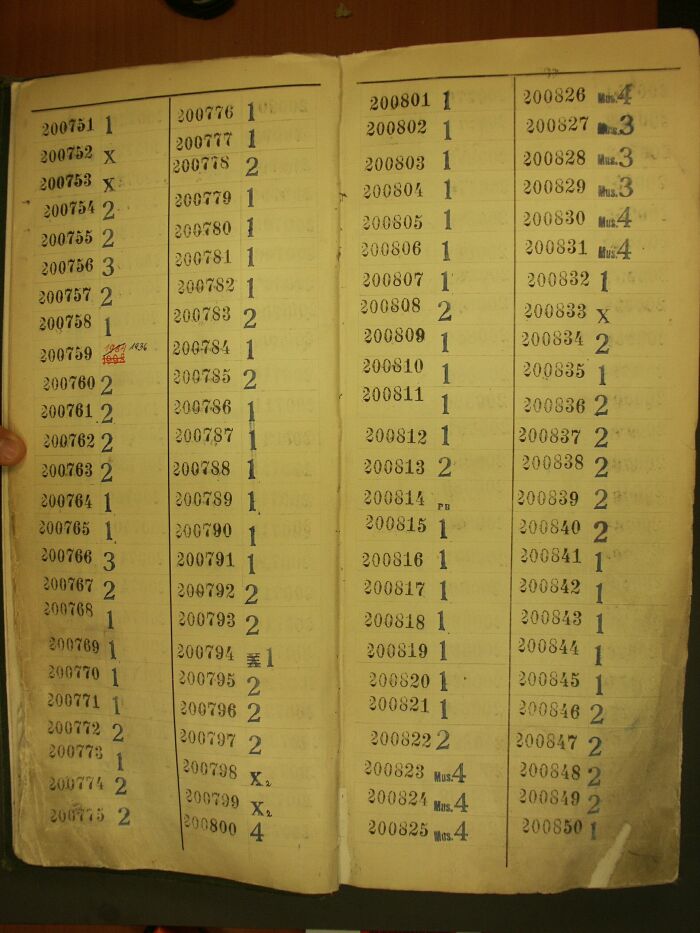 200751 1
200752 x
200753 x
200754 2
200755 2
200756 3
200757 2
200758 1
200759 1936
200760 2
200761 2
200762 2
200763 2
200764 1
200765 1
200766 3
200767 2
200768 1
200769 1
200770 1
200771 1
200772 2
200773 1
200774 2
200775 2
200776 1
200777 1
200778 2
200779 1
200780 1
200781 1
200782 1
200783 2
200784 1
200785 2
200786 1
200787 1
200788 1
200789 1
200790 1
200791 1
200792 2
200793 2
200794 x 1
200795 2
200796 2
200797 2
200798 X2
200799 X2
200800 4
33
200801 1
200802 1
200803 1
200804 1
200805 1
200806 1
200807 1
200808 2
200809 1
200810 1
200811 1
200812 1
200813 2
200814 PB
200815 1
200816 1
200817 1
200818 1
200819 1
200820 1
200821 1
200822 2
200823 Mus.4
200824 Mus.4
200825 Mus.4
200826 Mus.4
200827 Mus.3
200828 Mus.3
200829 Mus.3
200830 Mus.4
200831 Mus.4
200832 1
200833 X
200834 2
200835 1
200836 2
200837 2
200838 2
200839 2
200840 2
200841 1
200842 1
200843 1
200844 1
200845 1
200846 2
200847 2
200848 2
200849 2
200850 1